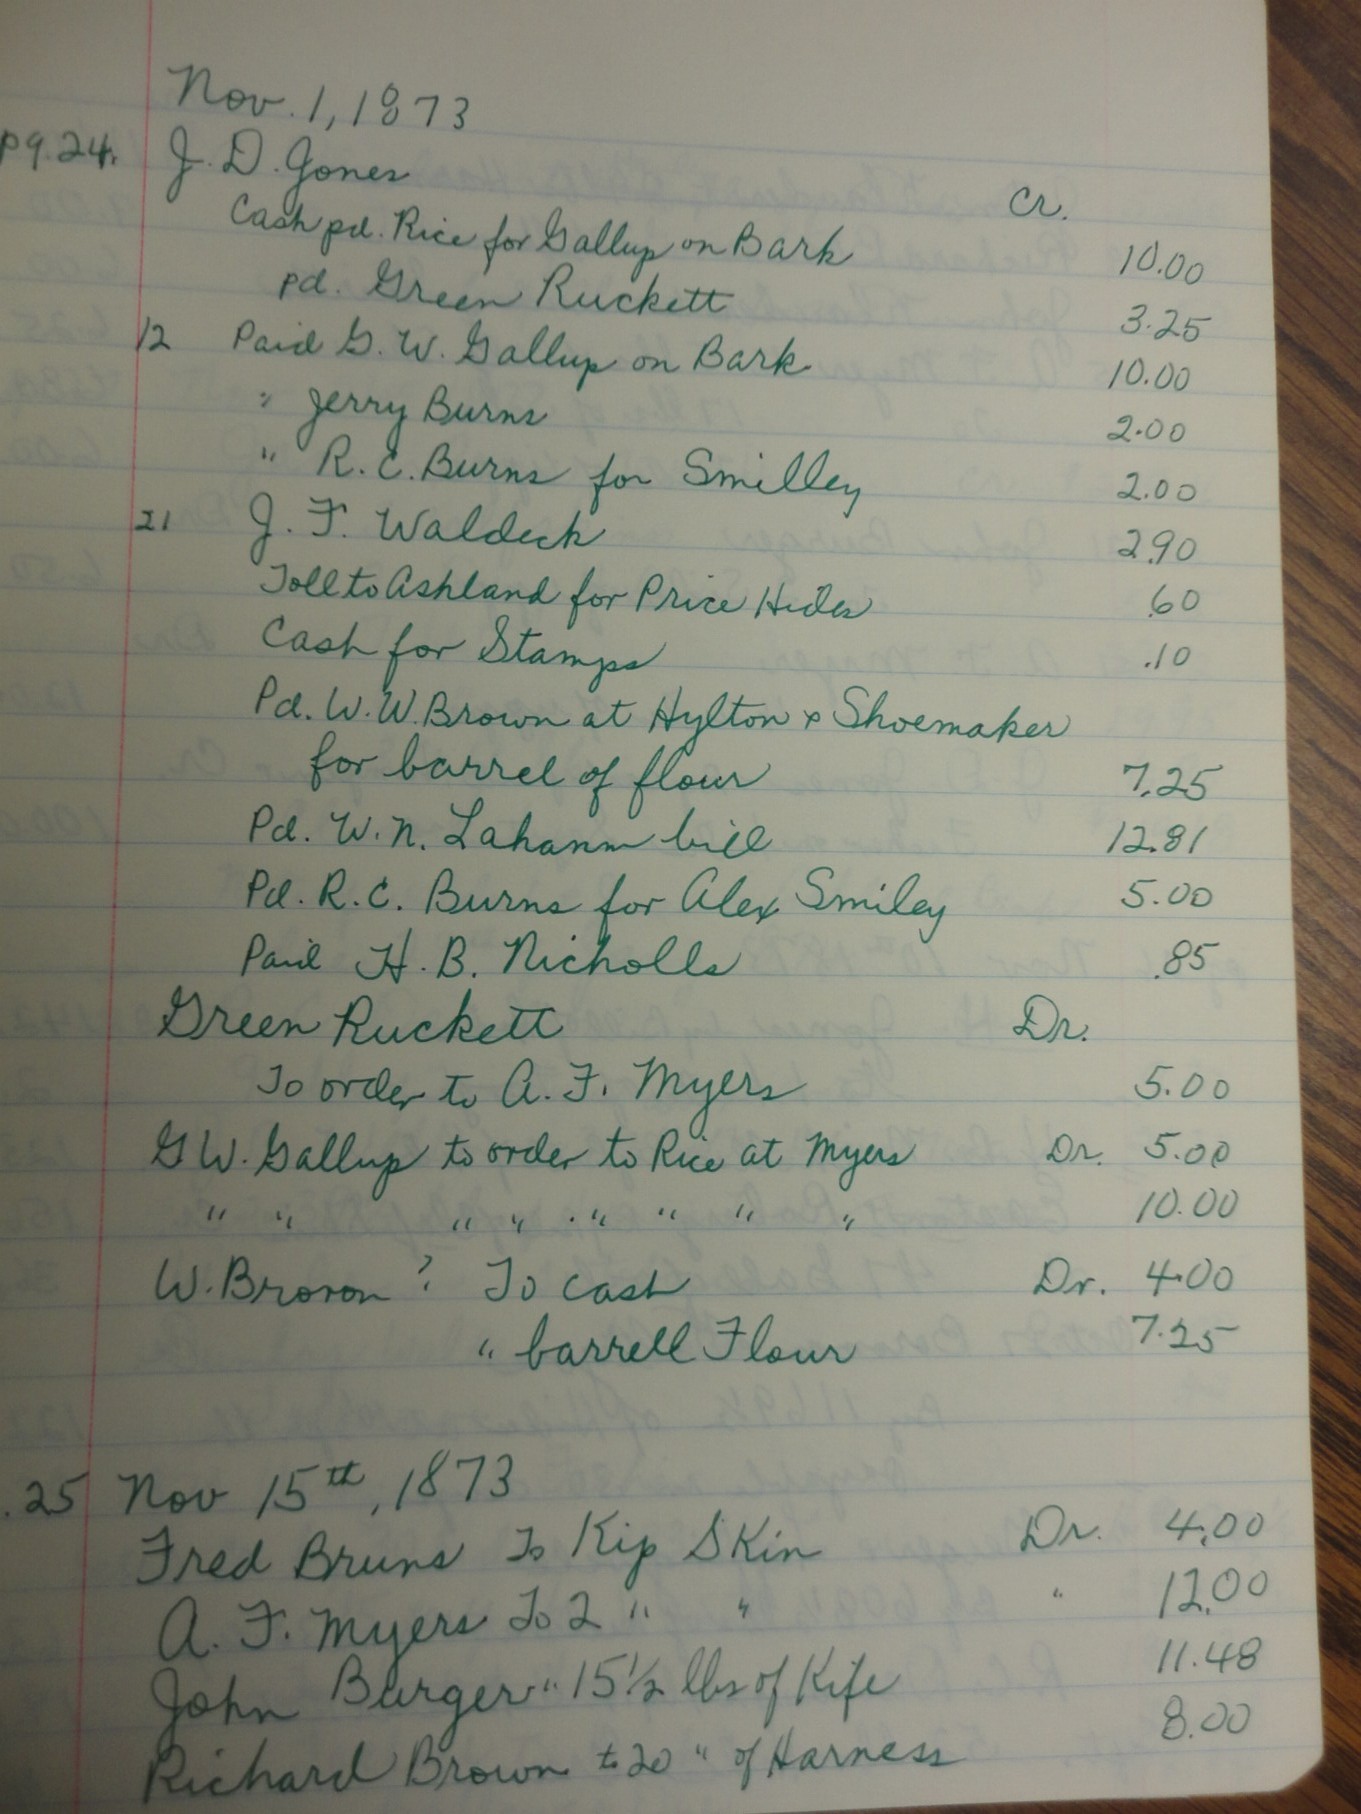 Nov. 1, 1873
pg. 24. J. D. Jones Cr.
Cash pd. Rice for Gallup on Bark 10.00
pd. Green Ruckett 3.25
12 Paid G. W. Gallup on Bark 10.00
" Jerry Burns 2.00
" R. C. Burns for Smilley 2.00
21 J. F. Waldeck 2.90
Toll to Ashland for Price Hides .60
Cash for Stamps .10
Pd. W. W. Brown at Hylton & Shoemaker
for barrel of flour 7.25
Pd. W. N. Lahanm bill 12.81
Pd. R. C. Burns for Alex Smiley 5.00
Paid H. B. Nicholls .85
Green Ruckett Dr.
To order to A. F. Myers 5.00
G W. Gallup to order to Rice at Myers Dr. 5.00
" " " " " " " " 10.00
W. Brown ? To cash Dr. 4.00
" barrell Flour 7.25
. 25 Nov 15th, 1873
Fred Bruns To Kip Skin Dr. 4.00
A. F. Myers To 2 " " " 12.00
John Burger " 15 1/2 lbs of Kife 11.48
Richard Brown to 20 " of Harness 8.00